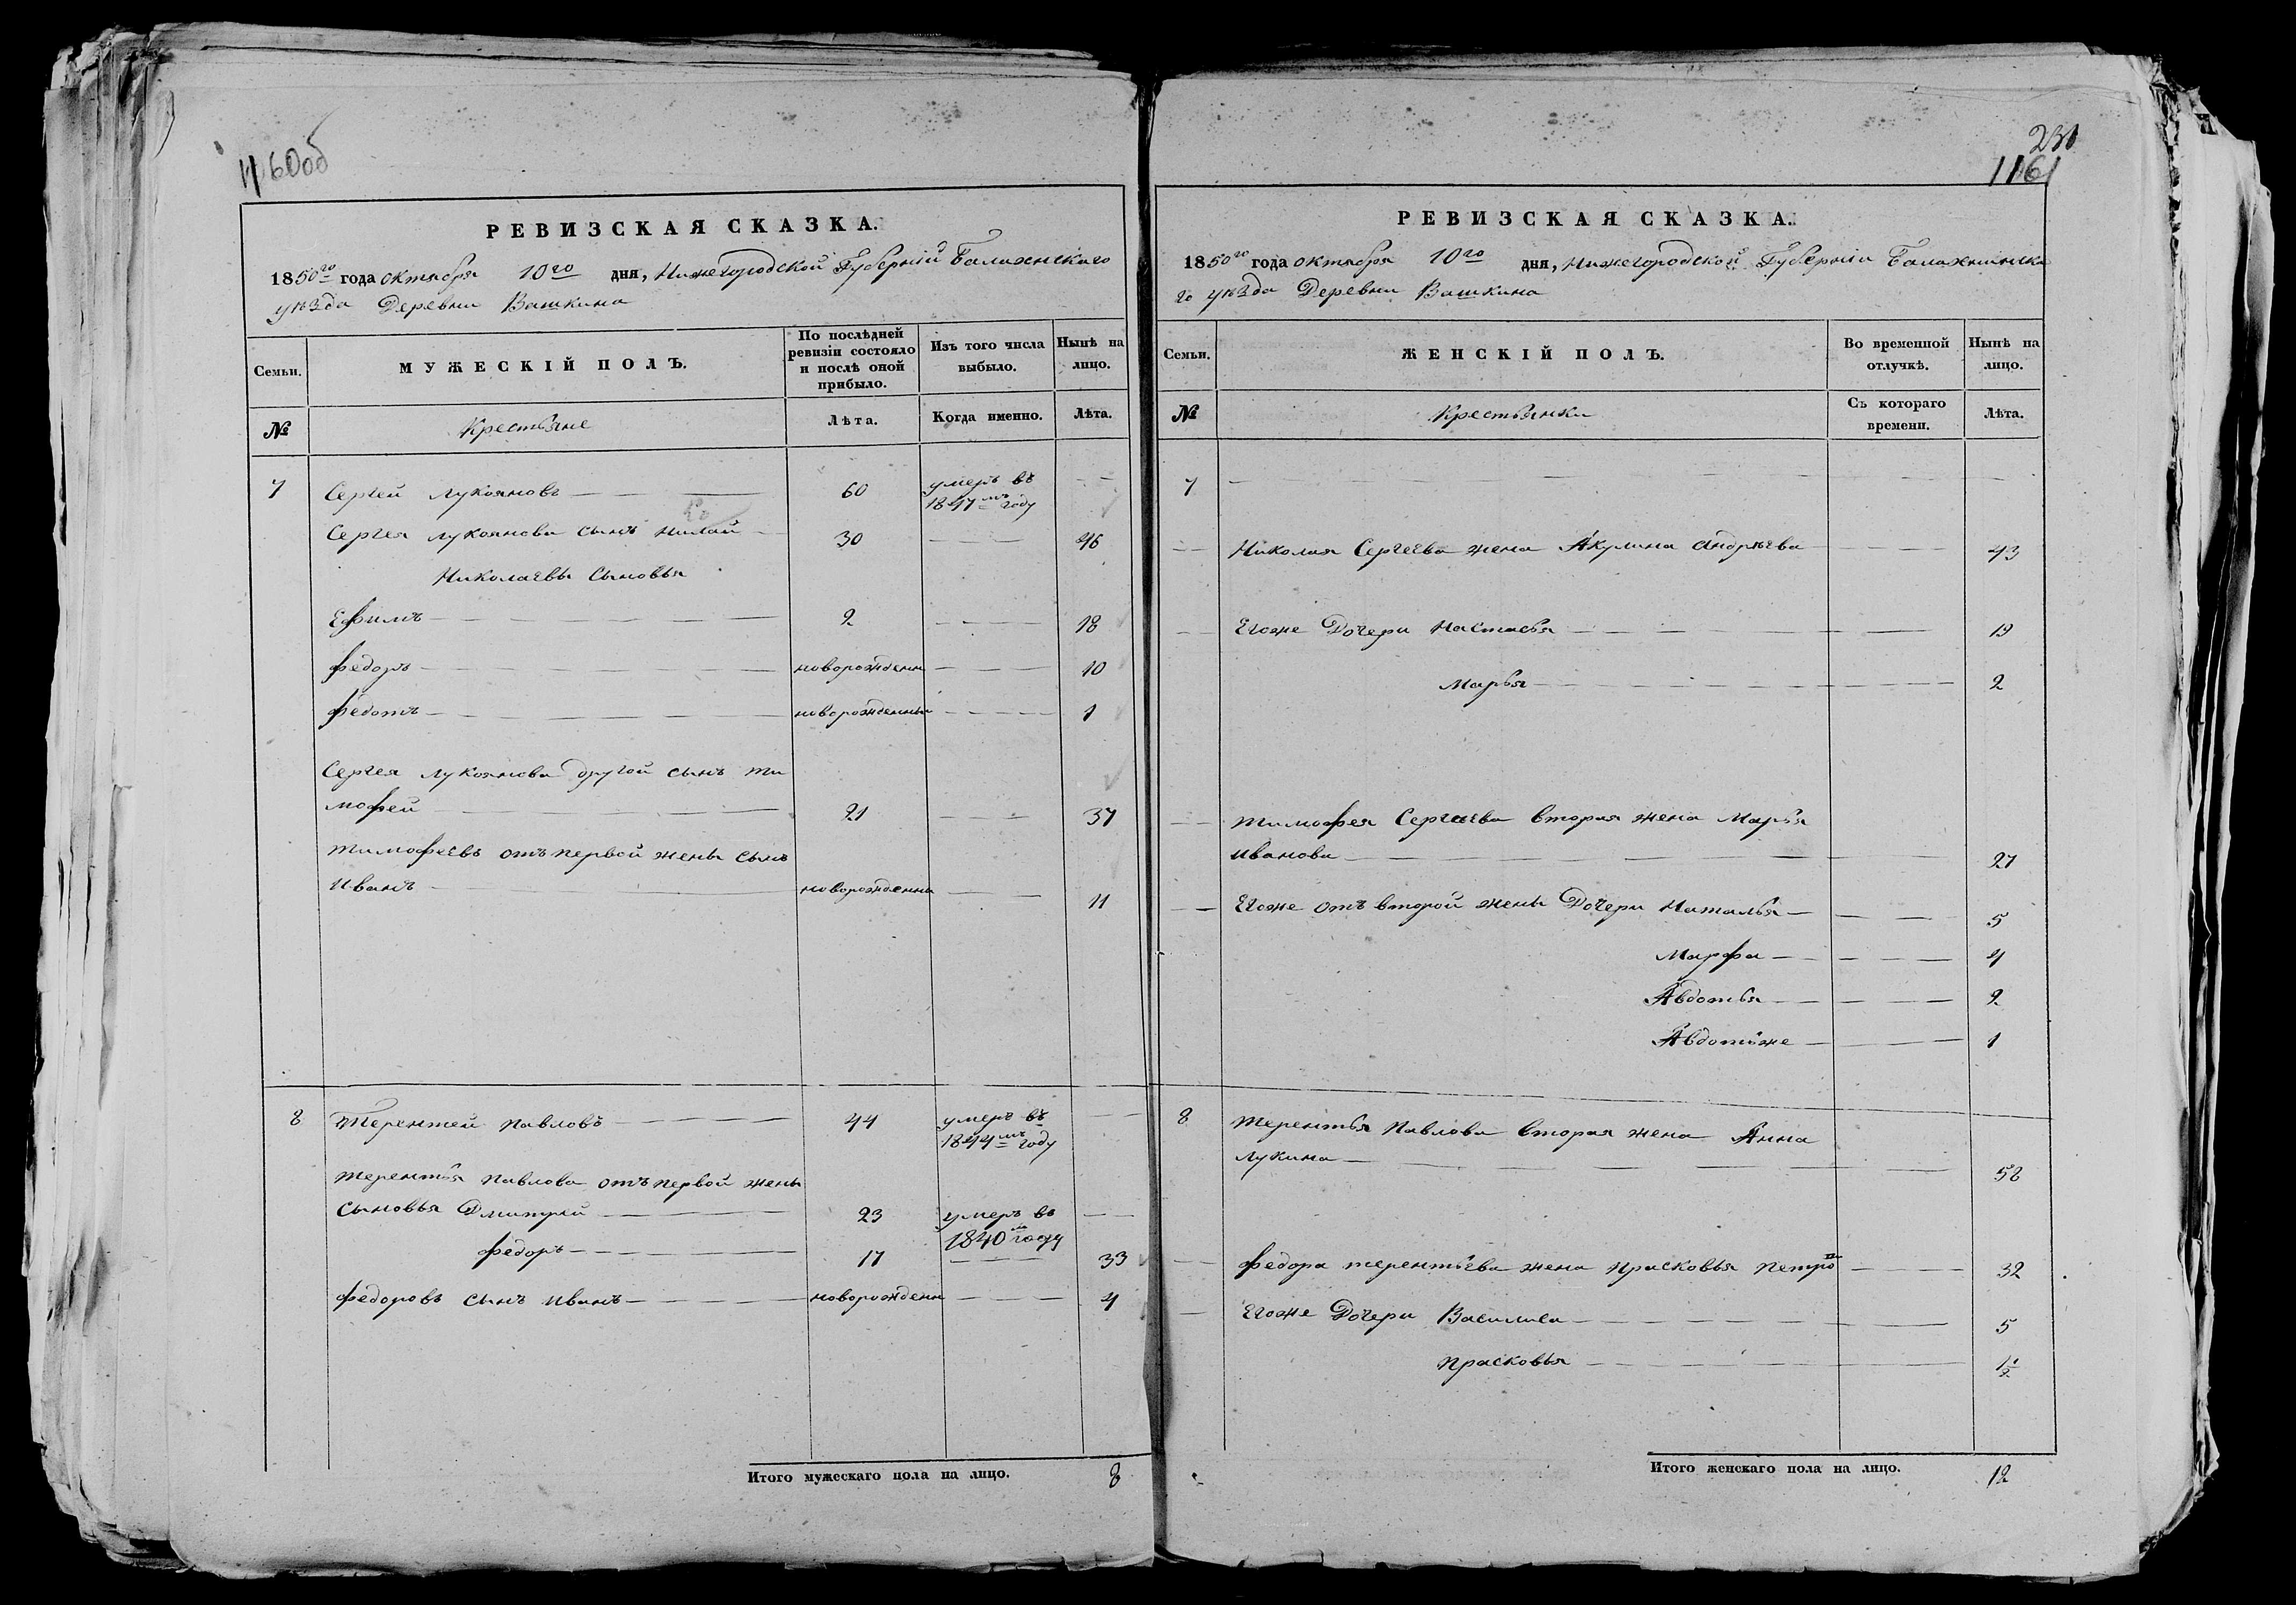 1160об
РЕВИЗСКАЯ СКАЗКА.
1850го года октября 10го дня, Нижегородской Губерніи Балахнскаго
уѣзда Деревни Вашкина
Семьи.
МУЖЕСКІЙ ПОЛЪ.
По послѣдней
ревизіи состояло
и послѣ оной
прибыло.
Изъ того числа
выбыло.
Нынѣ на
лицо.
№
Крестьяне
Лѣта.
Когда именно.
Лѣта.
7 Сергей Лукояновъ — — 60 умеръ въ — —
1847мъ году
Сергея Лукоянова сынъ Николай — 30 — — — 46
Николаевы Сыновья
Ефимъ — — — 2 — — — 18
Федоръ — — — новорожденн — — — 10
Федотъ — — — новорожденны — — — 1
Сергея Лукоянова другой сынъ Ти
мофей — — — 21 — — — 37
Тимофеевъ отъ первой жены сынъ
Иванъ — — новорожденны — — 11
8 Терентей Павловъ — — — 44 умеръ въ — —
1844мъ году
Терентья Павлова отъ первой жены
Сыновья Дмитрей — — — 23 умеръ въ — —
1840мъ году
Федоръ — — — 17 — — — 33
Федоровъ сынъ Иванъ — — — новорожденн — — — 4
Итого мужескаго пола на лицо. 8
231
1161
РЕВИЗСКАЯ СКАЗКА.
1850го года октября 10го дня, Нижегородской Губерніи Балахнинска
го уѣзда Деревни Вашкина
Семьи.
ЖЕНСКІЙ ПОЛЪ.
Во временной
отлучкѣ.
Нынѣ на
лицо.
№
Крестьянки
Съ котораго
времени.
Лѣта.
7 — — — — —
— — Николая Сергеева жена Акулина Андрѣева — — — 43
— — Егоже Дочери Настасья — — — 19
Марья — — — 2
— — Тимофея Сергеева вторая жена Марья
Иванова — — — 27
— — Егоже отъ второй жены Дочери Наталья — — — 5
Марфа — — — 4
Авдотья — — — 2
Авдотьяже — — — 1
8 Терентья Павлова вторая жена Анна
Лукина — — — 58
— — Федора Терентьева жена Прасковья Петро — — — 32
— Егоже Дочери Василиса — — — 5
Прасковья — — — ½
Итого женскаго пола на лицо. 12